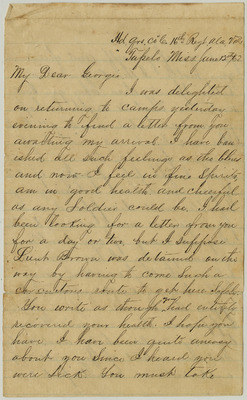 Hd Qrs, Co C. 16th Regt Ala Vols
Tupelo Miss June 12th /62
My Dear Georgie
I was delighted
on returning to camps yesterday
evening to find a letter from you
awaiting my arrival. I have ban-
ished all such feelings as the blues
and now I feel in fine Spirits,
am in good health and cheerful
as any Soldier could be. I had
been looking for a letter from you
for a day or two, but I suppose
Brown was detained on the
way by having to come such a
route to get here safely.
You write as though you had entirely
recovered your health. I hope you
have I have been quite uneasy
about you since I heard you
were sick. You must take